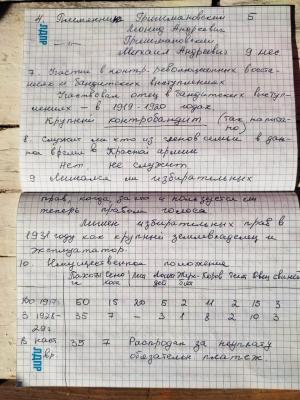 4. Племенник Гришмановский 5
Леонид Андреевич
— " — Гришмановский
Михаил Андреевич 9 мес
7. Участие в контр. революционных восста-
ниях и бандитских выступлениях
Участвовал отец в бандитских выступ-
лениях – в 1919-1920 годах.
Крупный контробандит (так написа-
но)
8. Служит ли кто из членов семьи в дан-
ное время в Красной армии
Нет не служит
9 Лишался ли избирательных
прав, когда, за что и пользуется ли
теперь правом голоса
Лишен избирательных прав в
1931 году как крупный землевладелец и
эксплуататор.
10. Имущественное положение
До 1917г 50 15 20 5 2 11 2 15 3
З 1928- 35 7 – 3 1 8 2 10 3
29г
В наст 35 7 Распродан за неуплату
вр. обязательн платеж
ЛДПР
ЛДПР